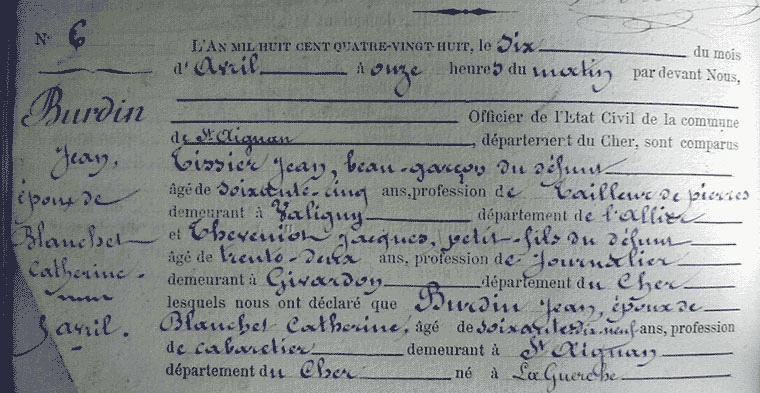 N° 6
Burdin
Jean,
époux de
Blanchet
Catherine.
5 avril.
L'AN MIL HUIT CENT QUATRE-VINGT-HUIT, le Six du mois
d'Avril à onze heures du matin par devant Nous,
Officier de l'Etat Civil de la commune
de St Aignan, département du Cher, sont comparus
Tissier Jean, beau-garçon du défunt
âgé de soixante-cinq ans, profession de Tailleur de pierres
demeurant à Valigny département de l'Allier
et Thevenion Jacques, petit-fils du défunt
âgé de trente-deux ans, profession de Journalier
demeurant à Givardon département du Cher
lesquels nous ont déclaré que Burdin Jean, époux de
Blanchet Catherine, âgé de soixante dix neuf ans, profession
de cabaretier demeurant à St Aignan
département du Cher né à La Guerche